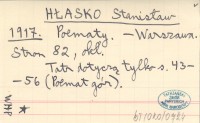 HŁASKO Stanisław
1917. Poematy. — Warszawa.
Stron 82, okl.
Tatr dotyczą tylko s. 43-
-56 (Poemat gór).
WMP